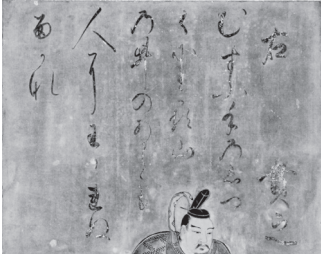 右 貫之
むすふ手のしつ
くにゝこる山
の井のあかても
人にわかれぬ
るかな